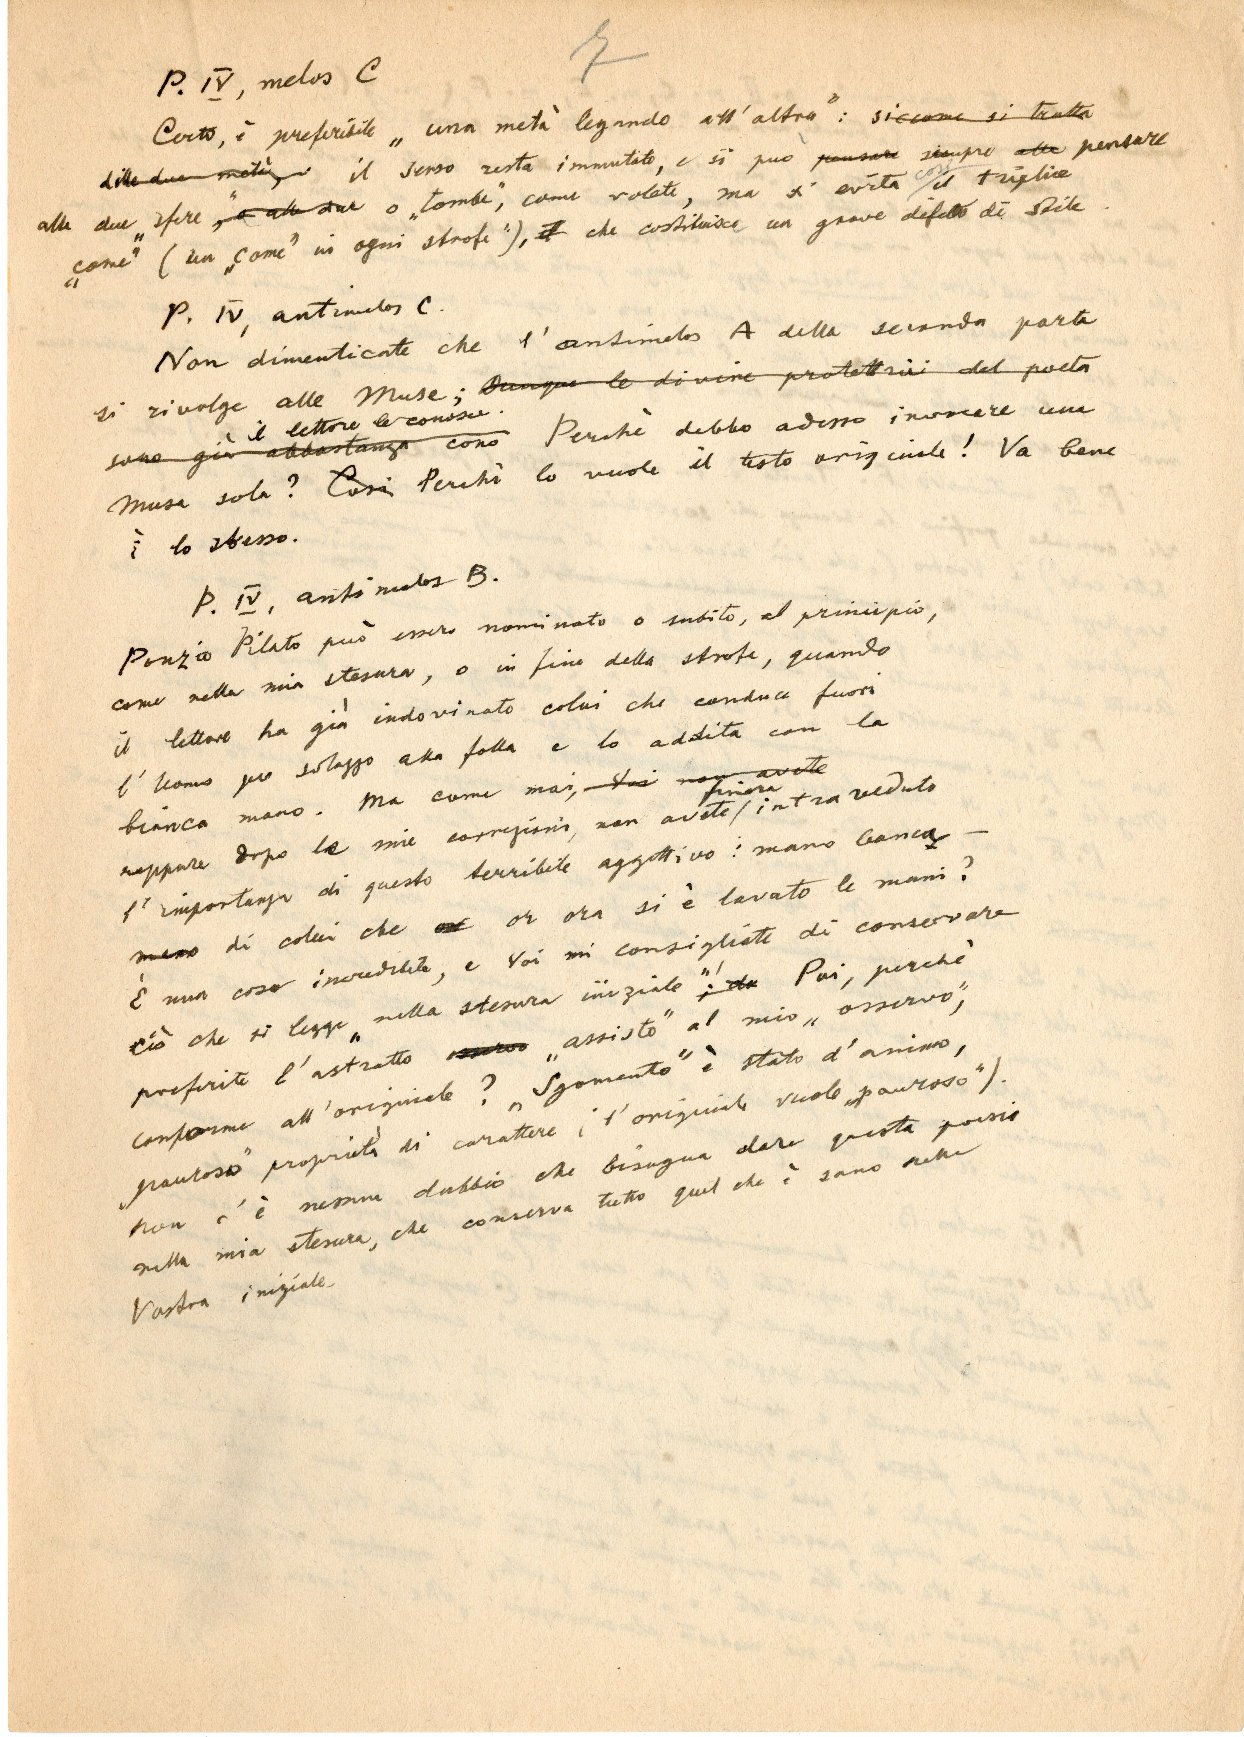 7
P. IV, melos C
Certo, è preferibile „una metà legando all'altra": siccome si tratta
delle due metà, il senso resta immutato, e si può pensare sempre alle pensare
alle due „sfere", o alle due o „tombe", come volete, ma si evita così il triplice
„come" (un „come" in ogni strofe"), che costituisce un grave difetto di stile.
P. IV, antimelos C.
Non dimenticate che l'antimelos A della seconda parte
si rivolge alle Muse; Dunque le divine protettrici del poeta
il lettore le conosce.
sono già abbastanza cono Perchè debbo adesso invocare una
Musa sola? Così Perchè lo vuole il testo originale! Va bene
è lo stesso.
P. IV, antimelos B.
Ponzio Pilato può essere nominato o subito, al principio,
come nella mia stesura, o in fine della strofe, quando
il lettore ha già indovinato colui che conduce fuori
l'Uomo per solazzo alla folla e lo addita con la
bianca mano. Ma come mai, Voi non avete
neppure dopo le mie correzioni, non avete finora intraveduto
l'importanza di questo terribile aggettivo: mano bianca –
mano di colui che or ora si è lavato le mani?
È una cosa incredibile, e Voi mi consigliate di conservare
ciò che si legge „nella stesura iniziale"! Poi, perchè
preferite l'astratto „assisto" al mio „osservo",
conforme all'originale? „Sgomento" è stato d'animo,
„pauroso" proprietà di carattere (l'originale vuole „pauroso").
Non c'è nessun dubbio che bisogna dare questa poesia
nella mia stesura, che conserva tutto quel che è sano nella
Vostra iniziale.